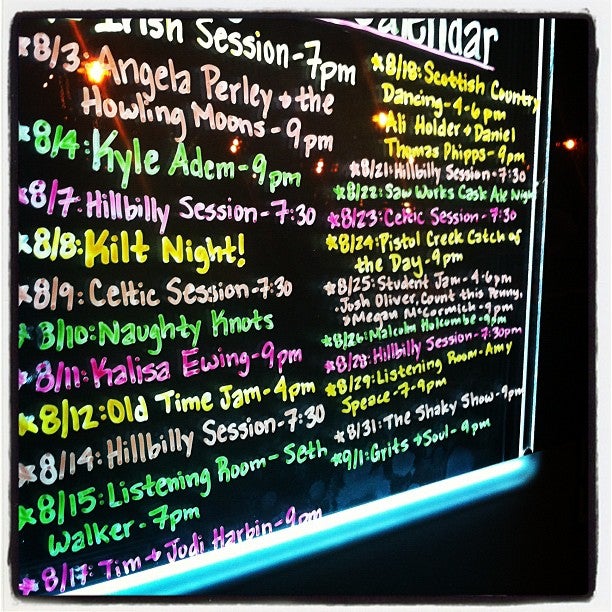 Irish Session-7pm
*8/3: Angela Perley + the
Howling Moons-9pm
*8/4: Kyle Adem-9pm
*8/7: Hillbilly Session-7:30
*8/8: Kilt Night!
*8/9: Celtic Session-7:30
*8/10: Naughty Knots
*8/11: Kalisa Ewing-9pm
*8/12: Old Time Jam-4pm
*8/14: Hillbilly Session-7:30
*8/15: Listening Room-Seth
Walker-7pm
*8/17: Tim + Jodi Harbin-9pm
Calendar
*8/18: Scottish Country
Dancing-4-6pm
Ali Holder + Daniel
Thomas Phipps-9pm
*8/21: Hillbilly Session-7:30
*8/22: Saw Works Cask Ale Night
*8/23: Celtic Session-7:30
*8/24: Pistol Creek Catch of
the Day-9pm
*8/25: Student Jam-4-6pm
Josh Oliver, Count this Penny,
+ Megan McCormick-9pm
*8/26: Malcolm Holcombe-9pm
*8/28: Hillbilly Session-7:30pm
*8/29: Listening Room-Amy
Speace-7-9pm
*8/31: The Shaky Show-9pm
*9/1: Grits + Soul-9pm